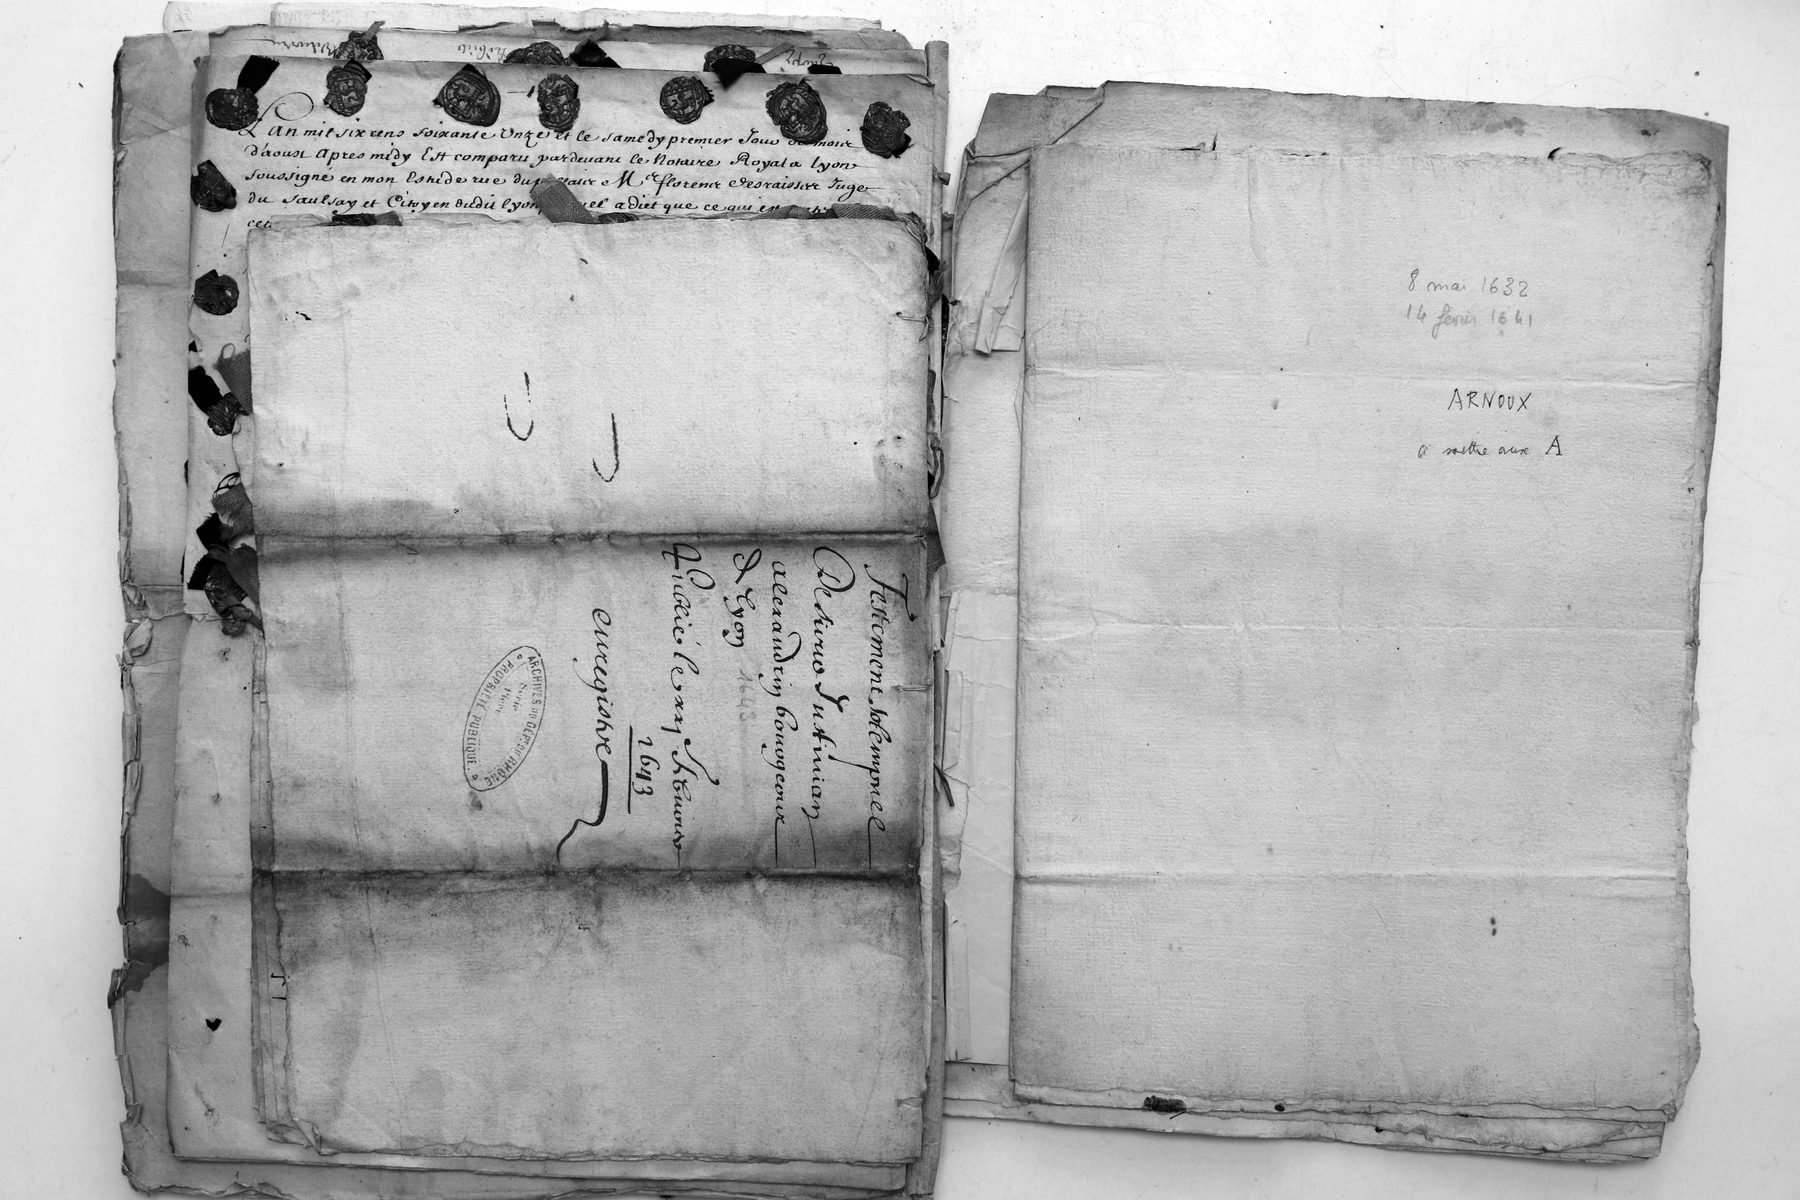 L'An mil six cens soixante Unze et le samedy premier Jour du mois
d'aoust Apres midy Est comparu pardevant le Notaire Royal a Lyon
soussigné en mon Estude rue du M.e florence Desraisier Juge
du Saulsay et Citoyen dudit lyon lequel a dict que ce qui est
cet
Testement solempnel
De sieur Justinian
alexandrin bourgeois
de lyon
1643
Publié le xxj febvrier
1643
enregistre
ARCHIVES DU DÉPT DU RHÔNE
Série
Pièce
PROPRIÉTÉ PUBLIQUE
8 mai 1632
14 février 1641
ARNOUX
a mettre aux A